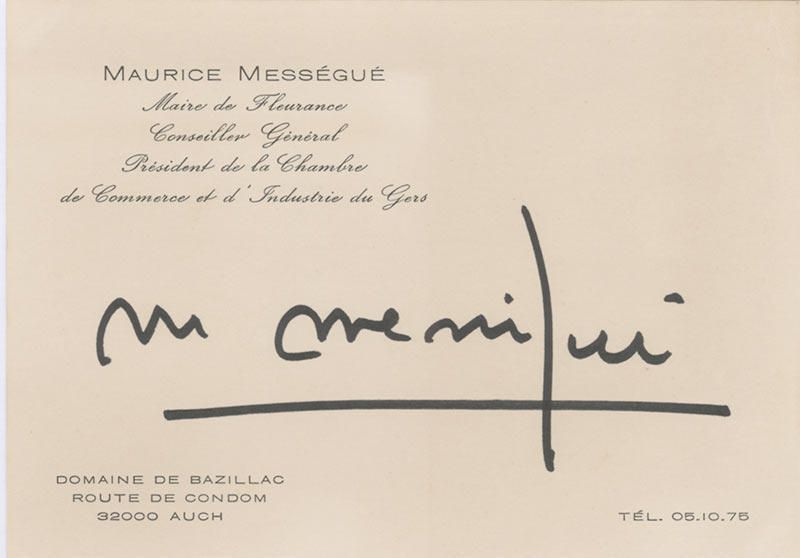 MAURICE MESSÉGUÉ
Maire de Fleurance
Conseiller Général
Président de la Chambre
de Commerce et d'Industrie du Gers
m mességué
DOMAINE DE BAZILLAC
ROUTE DE CONDOM
32000 AUCH
TÉL. 05.10.75